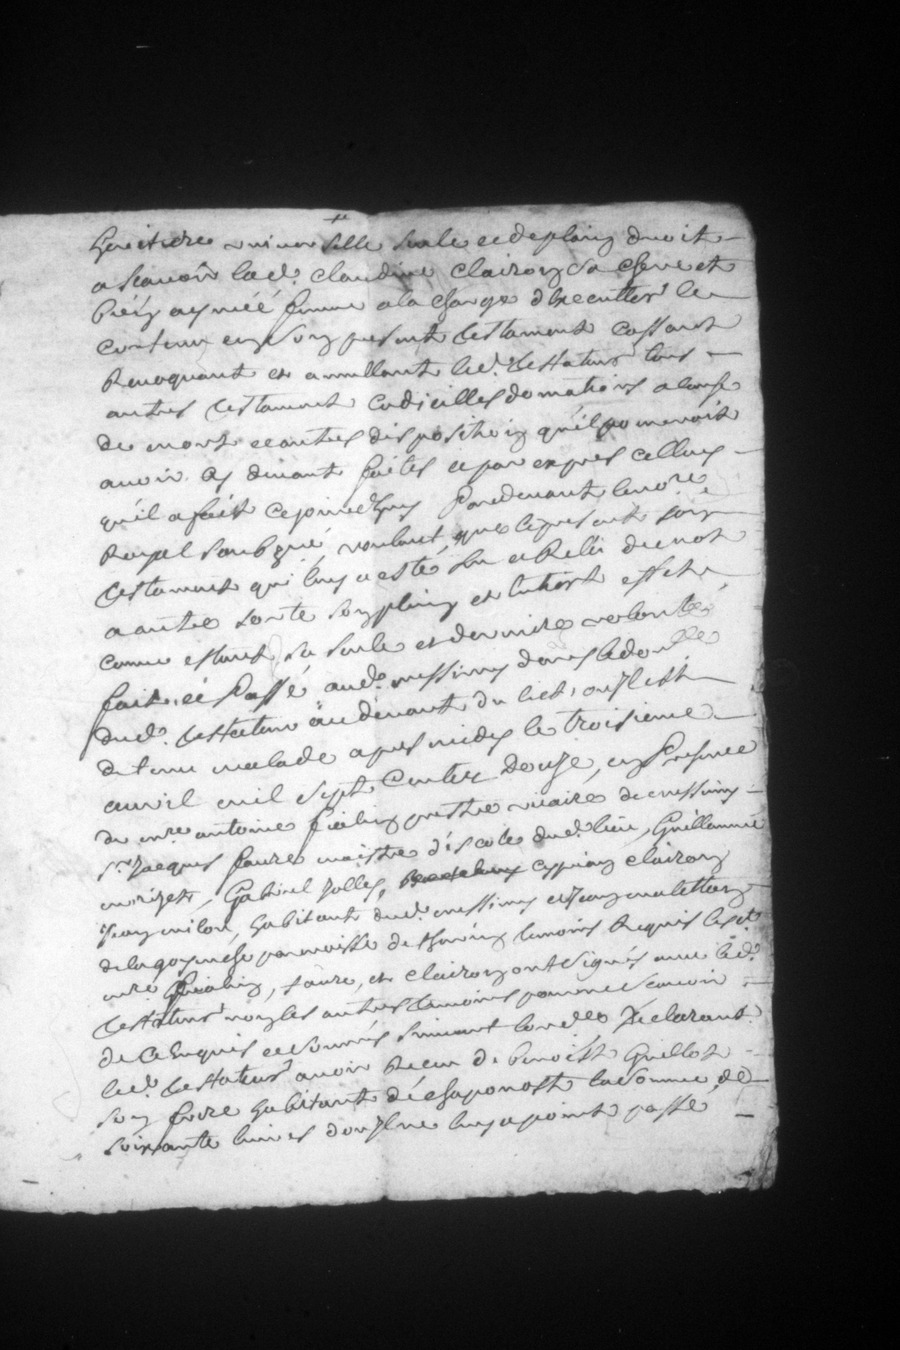 heritiere universelle seule et de plain droit
a scavoir lad. claudine clairon sa chere et
bien aymeé femme a la charge d'executter le
contenu en son present testament cassant
Revoquant et annullant led. testateur tous
autres testament codicilles donations a cause
de mort et autres disposition qu'il pourroit
avoir cy devant faites et par expres celluy
qu'il a fait cejourdhuy Pardevant le no.re
Royal soubzné, voulant que le present son
testament qui luy a esté lu et Relu de mot
a autre sorte son plain et entier effet
comme estant sa seule et derniere volonté
fait et Passé aud. messimy dans le domicille
dud. testateur au devant du lict, ou il est
detenu malade apres midy le troisieme
avril mil sept Cents douze, en Presence
de m.re antoine fialin prestre vicaire de messimy
s.r Jacques faure maistre d'escole dud. lieu, Guillaume
murizet, Gabriel Jullien, cyprien clairon
Jean milon, habitant dud. messimy et Jean
de la parroisse de thurin temoins Requis lesd.
m.re fialin, faure, et clairon ont signés avec led.
testateur non les autres temoins pour ne scavoir
de ce Enquis et sommés suivant l'ord.ce Declarant
led. testateur avoir Receu de benoist Guillot
son frere habitant de chaponost la somme de
soixante livres dont il ne luy a point passé